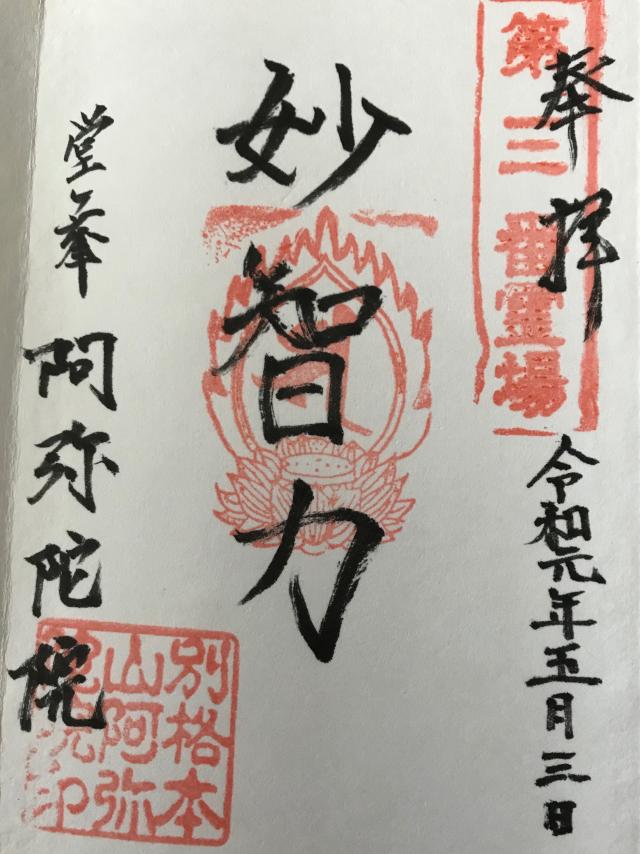 奉拝
第三番霊場
令和元年五月三日
妙智力
堂峯
阿弥陀院
別格本
山阿弥
陀院印